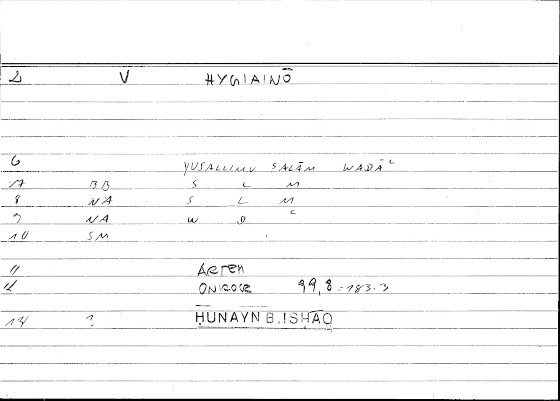 2 V HYGIAINŌ
6 YUSALLIMU SALĀM WADĀʿ
7 BB S L M
8 NA S L M
9 NA W D ʿ
10 SM
11 ARTEM
12 ONIROCR 99,8 = 183.3
14 ? ḤUNAYN B. ISḤĀQ